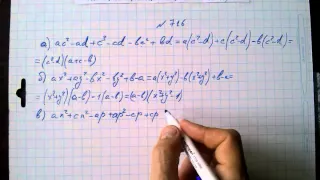 № 716
а) ac² - ad + c³ - cd - bc² + bd = a(c² - d) + c(c² - d) - b(c² - d) =
= (c² - d)(a + c - b)
б) ax² + ay² - bx² - by² + b - a = a(x² + y²) - b(x² + y²) + b - a =
= (x² + y²)(a - b) - 1(a - b) = (a - b)(x² + y² - 1)
в) an² + cn² - ap + ap² - cp + cp